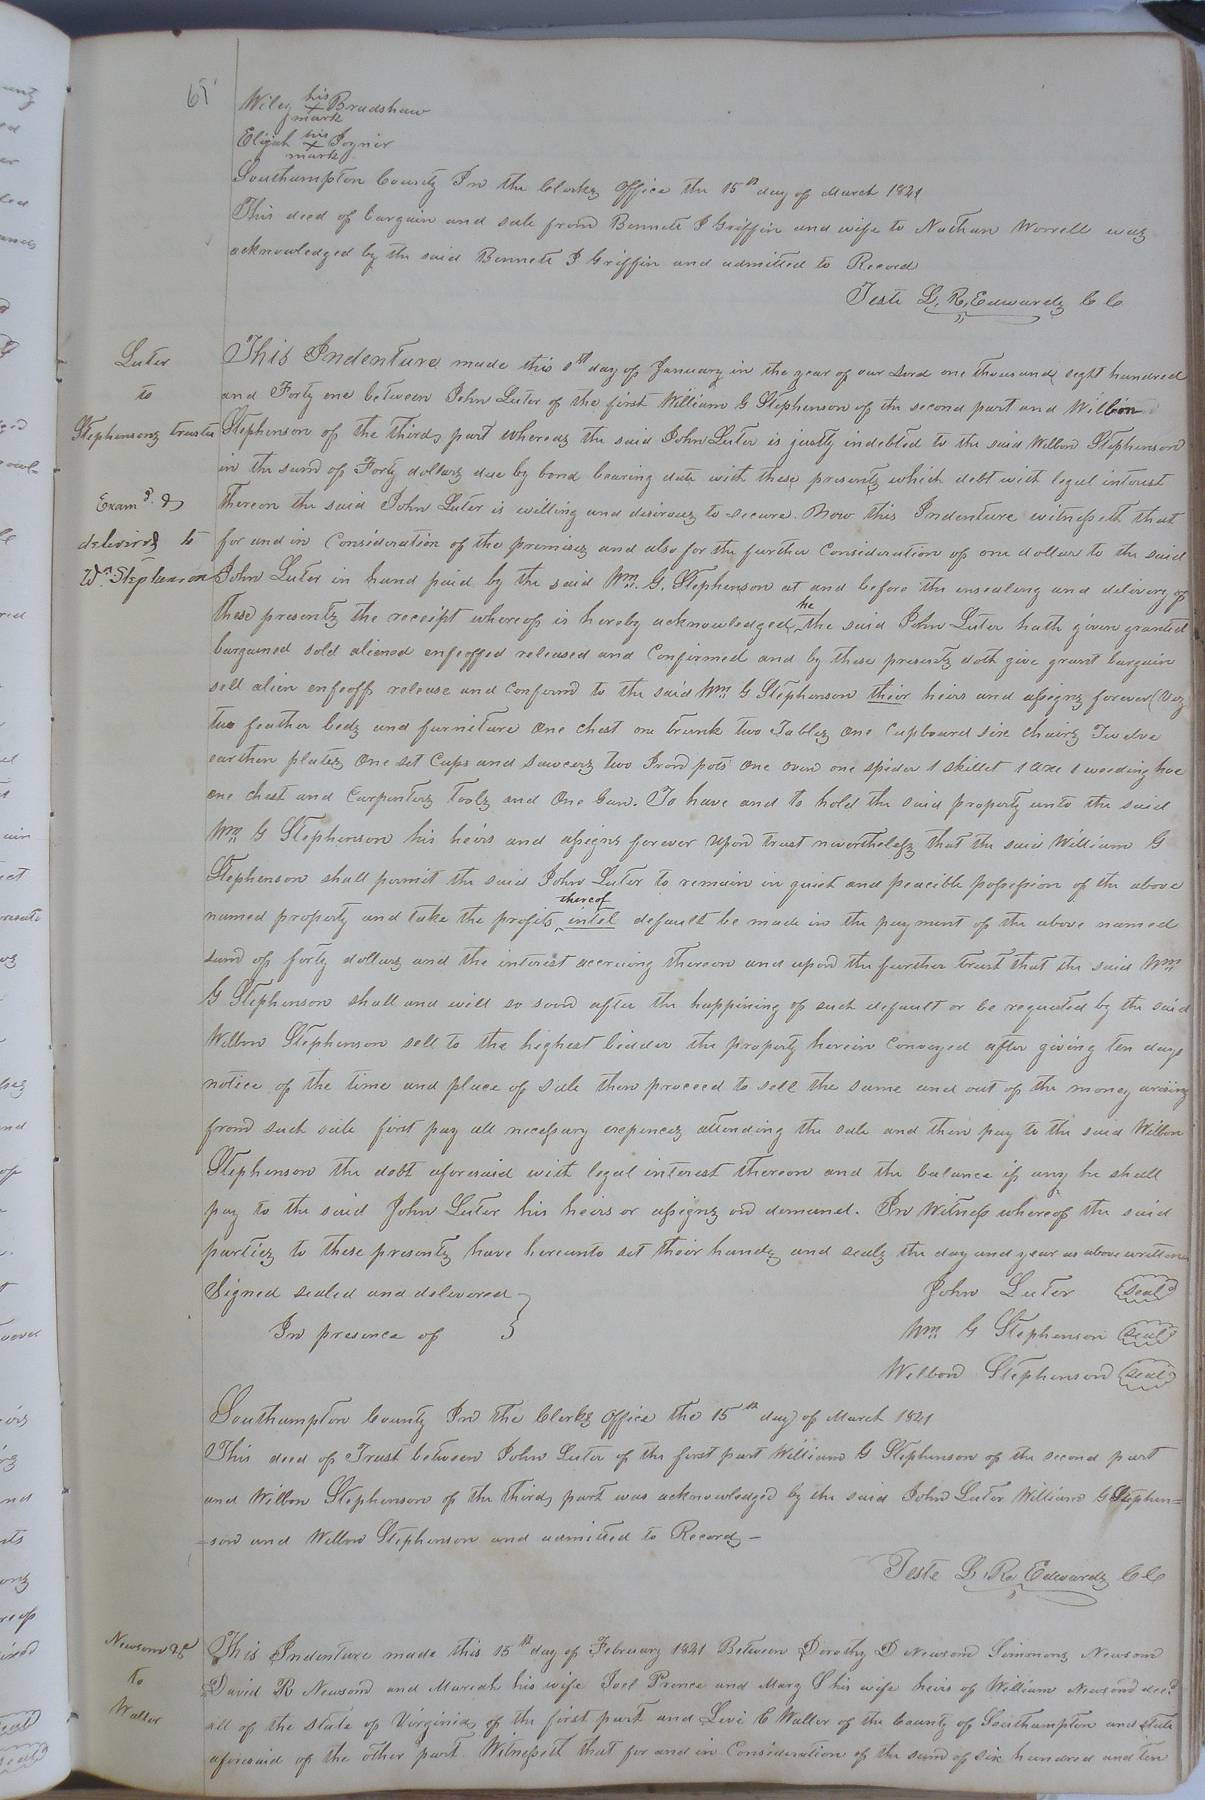 65
Wiley his x mark Bradshaw
Elijah his x mark Joyner
Southampton County In the Clerks office the 15th day of March 1841
This deed of bargain and sale from Bennett J Griffin and wife to Nathan Worrell was
acknowledged by the said Bennett J Griffin and admitted to Record
Teste L. R. Edwards C C
Luter
to
Stephensons trustee
Examd. &
delivered to
Wm Stephenson
This Indenture made this 8th day of January in the year of our Lord one thousand eight hundred
and Forty one between John Luter of the first William G Stephenson of the second part and Wilbon
Stephenson of the third part whereas the said John Luter is justly indebted to the said Wilbon Stephenson
in the sum of Forty dollars due by bond bearing date with these presents which debt with legal interest
thereon the said John Luter is willing and desirous to secure. Now this Indenture witnesseth that
for and in Consideration of the premises and also for the further Consideration of one dollar to the said
John Luter in hand paid by the said Wm. G. Stephenson at and before the ensealing and delivery of
these presents the receipt whereof is hereby acknowledged he the said John Luter hath given granted
bargained sold aliened enfeoffed released and Confirmed and by these presents doth give grant bargain
sell alien enfeoff release and confirm to the said Wm G Stephenson their heirs and assigns forever (Viz
two feather beds and furniture one chest one trunk two Tables one Cupboard six chairs Twelve
earthen plates one set Cups and sawcers two Iron pots one oven one spider 1 skillet 1 axe 1 weeding hoe
one chest and Carpenters Tools and One Gun. To have and to hold the said property unto the said
Wm G Stephenson his heirs and assigns forever upon trust nevertheless that the said William G
Stephenson shall permit the said John Luter to remain in quiet and peacible possession of the above
named property and take the profits thereof intel default be made in the payment of the above named
sum of forty dollars and the interest accruing thereon and upon the further trust that the said Wm
G Stephenson shall and will so soon after the happining of such default or be requested by the said
Wilbon Stephenson sell to the highest bidder the property herein Conveyed after giving ten days
notice of the time and place of sale then proceed to sell the same and out of the money arising
from such sale first pay all necessary expences attending the sale and then pay to the said Wilbon
Stephenson the debt aforesaid with legal interest thereon and the balance if any he shall
pay to the said John Luter his heirs or assigns on demand. In Witness whereof the said
parties to these presents have hereunto set their hands and seals the day and year as above written
Signed sealed and delivered
In presence of
John Luter Seal
Wm G Stephenson Seal
Wilbon Stephenson Seal
Southampton County In the Clerks office the 15th day of March 1841
This deed of Trust between John Luter of the first part William G Stephenson of the second part
and Wilbon Stephenson of the third part was acknowledged by the said John Luter William G Stephen=
=son and Wilbon Stephenson and admitted to Record —
Teste L. R. Edwards C C
Newsom &c
to
Waller
This Indenture made this 15th day of February 1841 Between Dorothy D Newsom Simmons Newsom
David R Newsom and Mariah his wife Joel Prince and Mary C his wife heirs of William Newsom decd.
all of the State of Virginia of the first part and Levi C Waller of the County of Southampton and state
aforesaid of the other part. Witnesseth that for and in Consideration of the sum of six hundred and ten